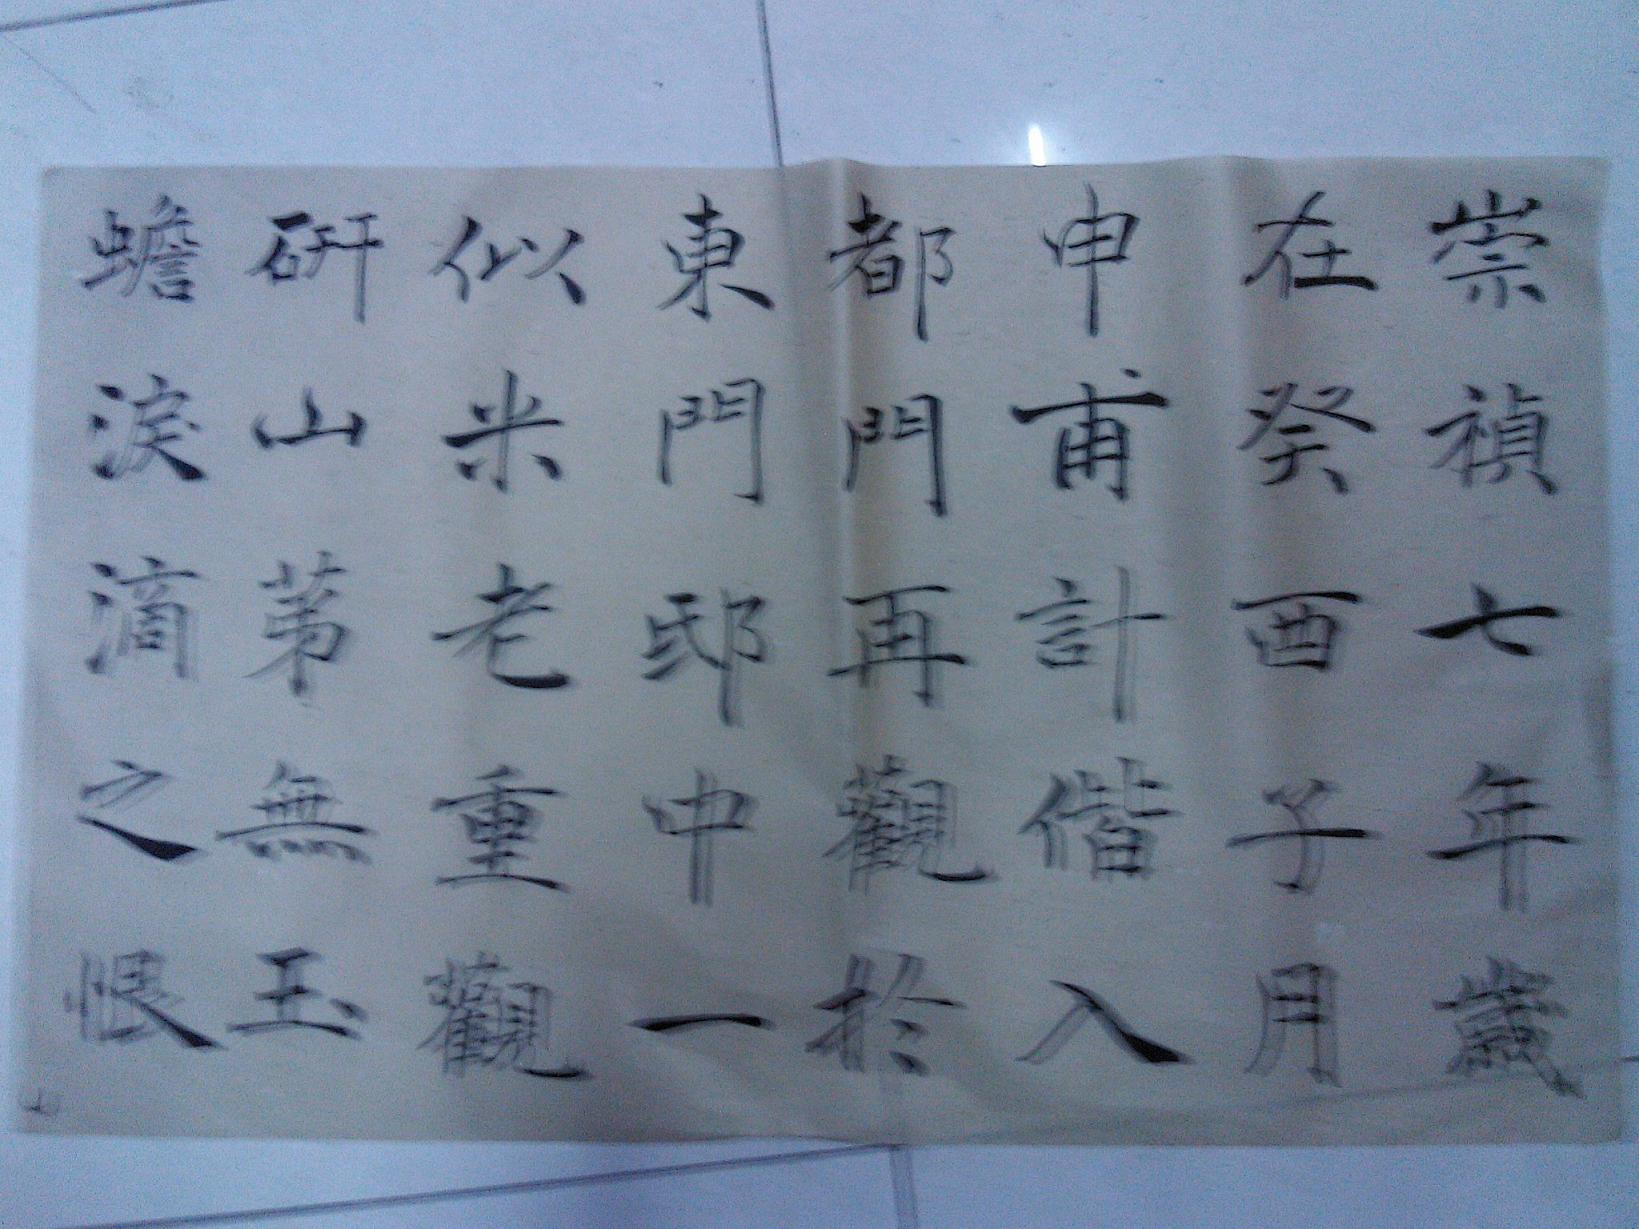 崇禎七年歲
在癸酉子月
申甫計偕入
都門再觀於
東門邸中一
似米老重觀
研山苐無玉
蟾淚滴之恨